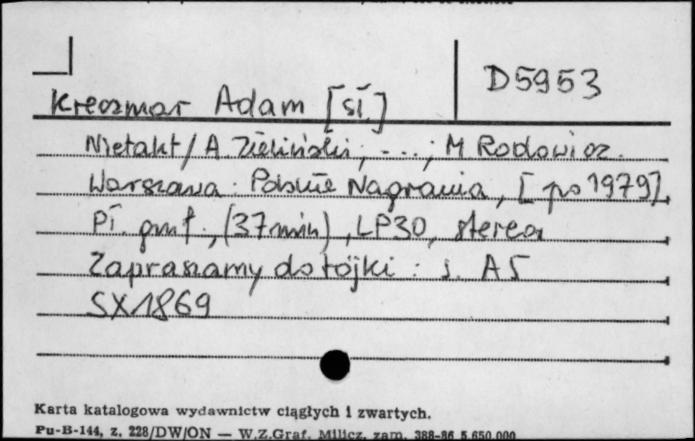 D5953
Kreczmar Adam [sł.]
Nietakt / A. Zieliński; ...; M Rodowicz.
Warszawa: Polskie Nagrania, [po 1979].
Pł. gmf., (37 min), LP30, stereo
Zapraszamy do Trójki: s. A5
SX1869
Karta katalogowa wydawnictw ciągłych i zwartych.
Pu-B-144, z. 228/DW/ON — W.Z.Graf. Milicz, zam. 388-86 5.650.000